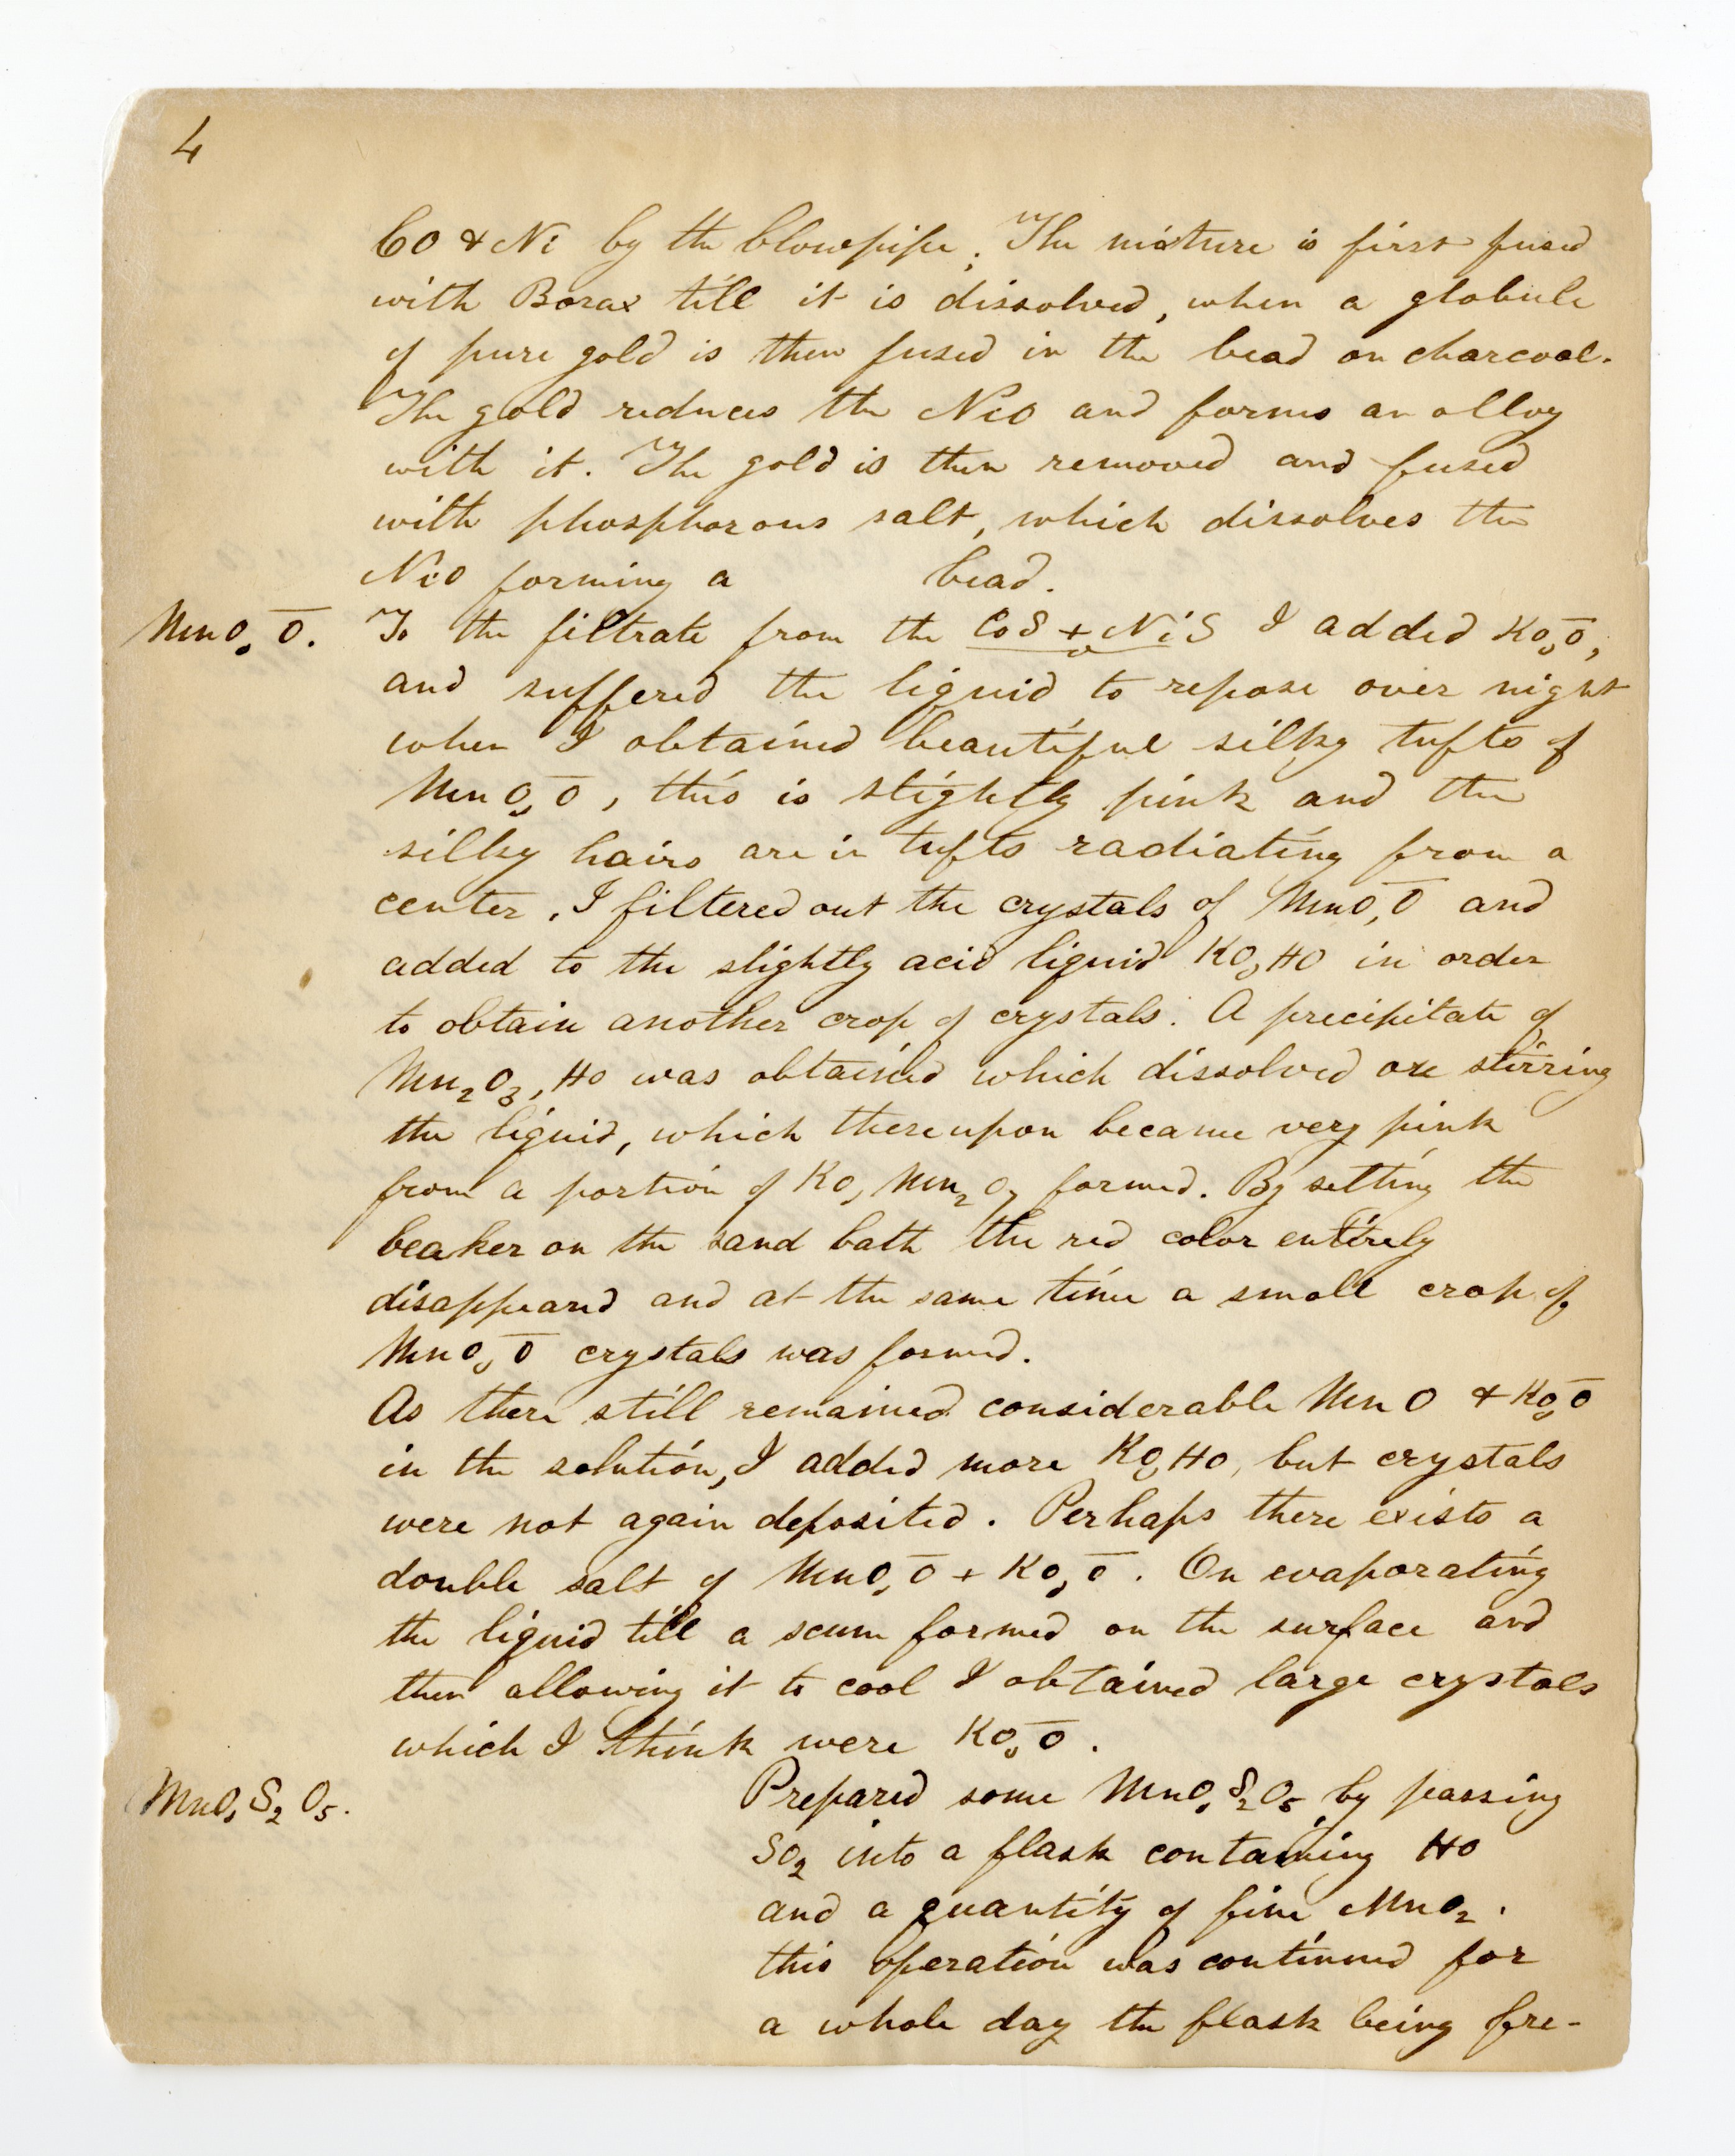 4
CO & Ni by the blowpipe; The mixture is first fused
with Borax till it is dissolved, when a globule
of pure gold is then fused in the bead on charcoal.
The gold reduces the NiO and forms an alloy
with it. The gold is then removed and fused
with phosphorous salt, which dissolves the
NiO forming a bead.
MnO, O̅. To the filtrate from the CoS + NiS I added KO,O̅,
and suffered the liquid to repose over night
when I obtained beautiful silky tufts of
MnO,O̅, this is slightly pink and the
silky hairs are in tufts radiating from a
center, I filtered out the crystals of MnO,O̅ and
added to the slightly acid liquid KO,HO in order
to obtain another crop of crystals. A precipitate of
Mn₂O₃, HO was obtained which dissolved on stirring
the liquid, which thereupon became very pink
from a portion of KO, Mn₂O₇ formed. By setting the
beaker on the sand bath the red color entirely
disappeared and at the same time a small crop of
MnO,O̅ crystals was formed.
As there still remained considerable MnO & KO,O̅
in the solution, I added more KO,HO, but crystals
were not again deposited. Perhaps there exists a
double salt of MnO,O̅ + KO,O̅. On evaporating
the liquid till a scum formed on the surface and
then allowing it to cool I obtained large crystals
which I think were KO,O̅.
MnO, S₂O₅. Prepared some MnO,S₂O₅ by passing
SO₂ into a flask containing HO
and a quantity of fine MnO₂.
this operation was continued for
a whole day the flask being fre-